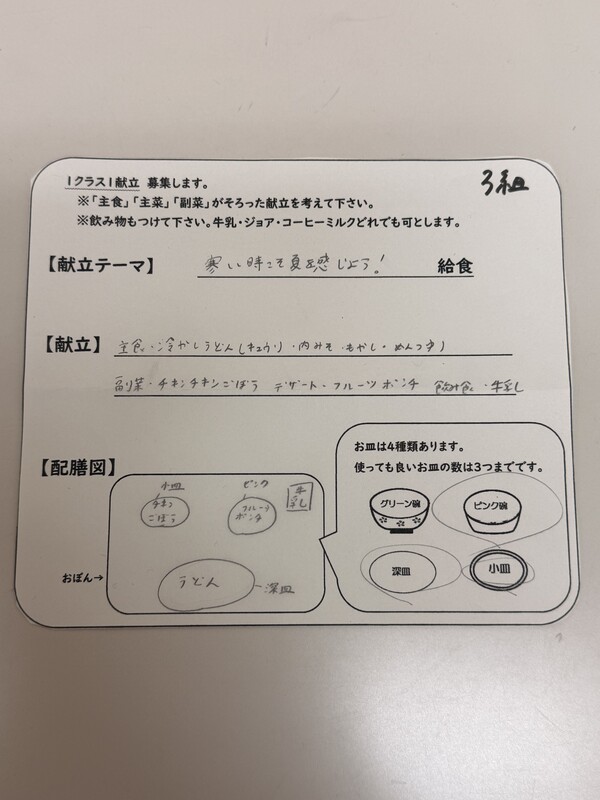 1クラス1献立 募集します。
3組
※「主食」「主菜」「副菜」がそろった献立を考えて下さい。
※飲み物もつけて下さい。牛乳・ジョア・コーヒーミルクどれでも可とします。
【献立テーマ】 寒い時こそ夏を感じよう! 給食
【献立】 主食・冷やしうどん(キュウリ・肉みそ・もやし・めんつゆ)
副菜・チキンチキンごぼう デザート・フルーツポンチ 牛乳
【配膳図】
お皿は4種類あります。
使っても良いお皿の数は3つまでです。
小皿
チキン
ごぼう
ピンク
フルーツ
ポンチ
牛乳
おぼん→
うどん
深皿
グリーン碗
ピンク碗
深皿
小皿